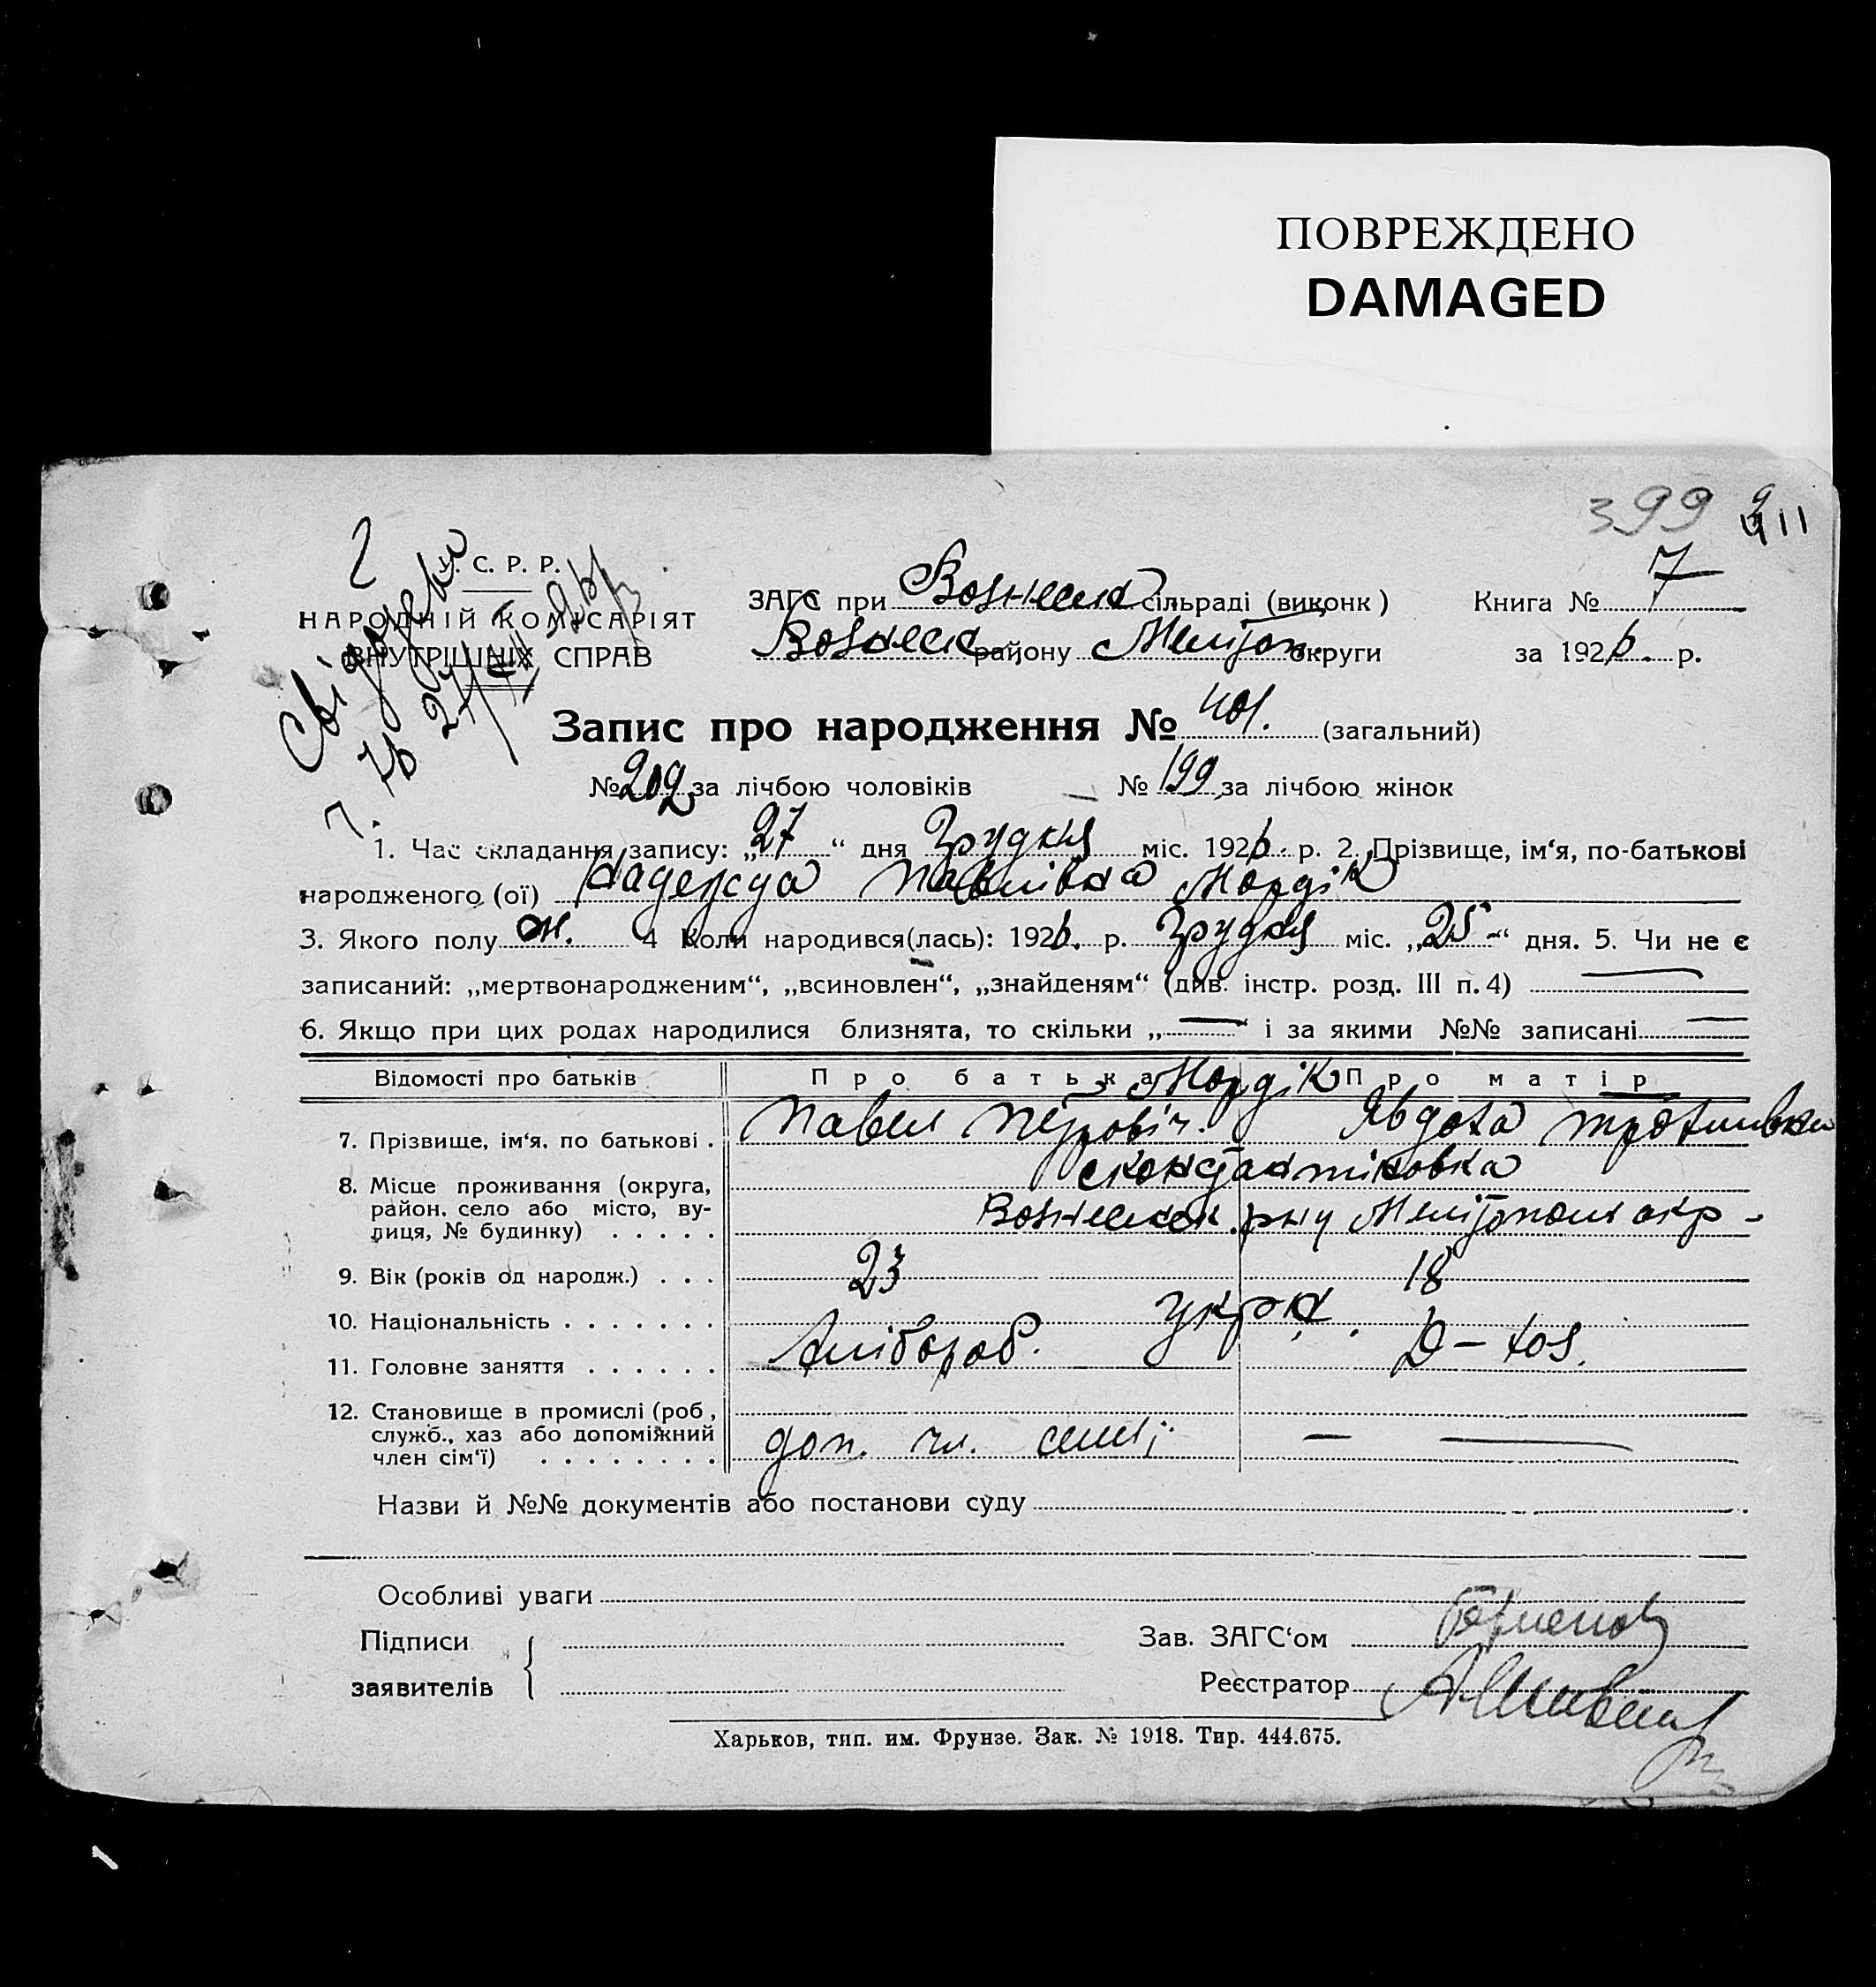 ПОВРЕЖДЕНО
DAMAGED
399
У. С. Р. Р.
НАРОДНІЙ КОМІСАРІЯТ
ВНУТРІШНІХ СПРАВ
ЗАГС при Вознесенс. сільраді (виконк)
Вознесенс. району Меліт. округи
Книга № 7
за 1926 р.
Запис про народження № 401. (загальний)
№ 202 за лічбою чоловіків № 199 за лічбою жінок
1. Час складання запису: „27“ дня Грудня міс. 1926 р. 2. Прізвище, ім‘я, по-батькові
народженого (ої) Надежда Павлівна Мордік
3. Якого полу ж. 4 Коли народився(лась): 1926. р. Грудня міс. „25“ дня. 5. Чи не є
записаний: „мертвонародженим“, „всиновлен“, „знайденям“ (див. інстр. розд. III п. 4)
6. Якщо при цих родах народилися близнята, то скільки „—“ і за якими №№ записані —
Відомості про батьків Про батька Про матір
Мордік
7. Прізвище, ім‘я, по батькові . Павел Петровіч. Явдоха
8. Місце проживання (округа, район, село або місто, вулиця, № будинку) . . . . . с Констянтиновка
Вознесенск. р-ну Мелітопольс окр -
9. Вік (років од народж.) . . . 23 18
10. Національність . . . . . . . укра.
11. Головне заняття . . . . . . Хлібороб. Д-тоз.
12. Становище в промислі (роб,
служб., хаз або допоміжний
член сім‘ї) . . . . . . . . доп. чл. сім'ї — —
Назви й №№ документів або постанови суду
Особливі уваги
Підписи
заявителів
Зав. ЗАГС‘ом
Реєстратор
Харьков, тип. им. Фрунзе. Зак. № 1918. Тир. 444.675.